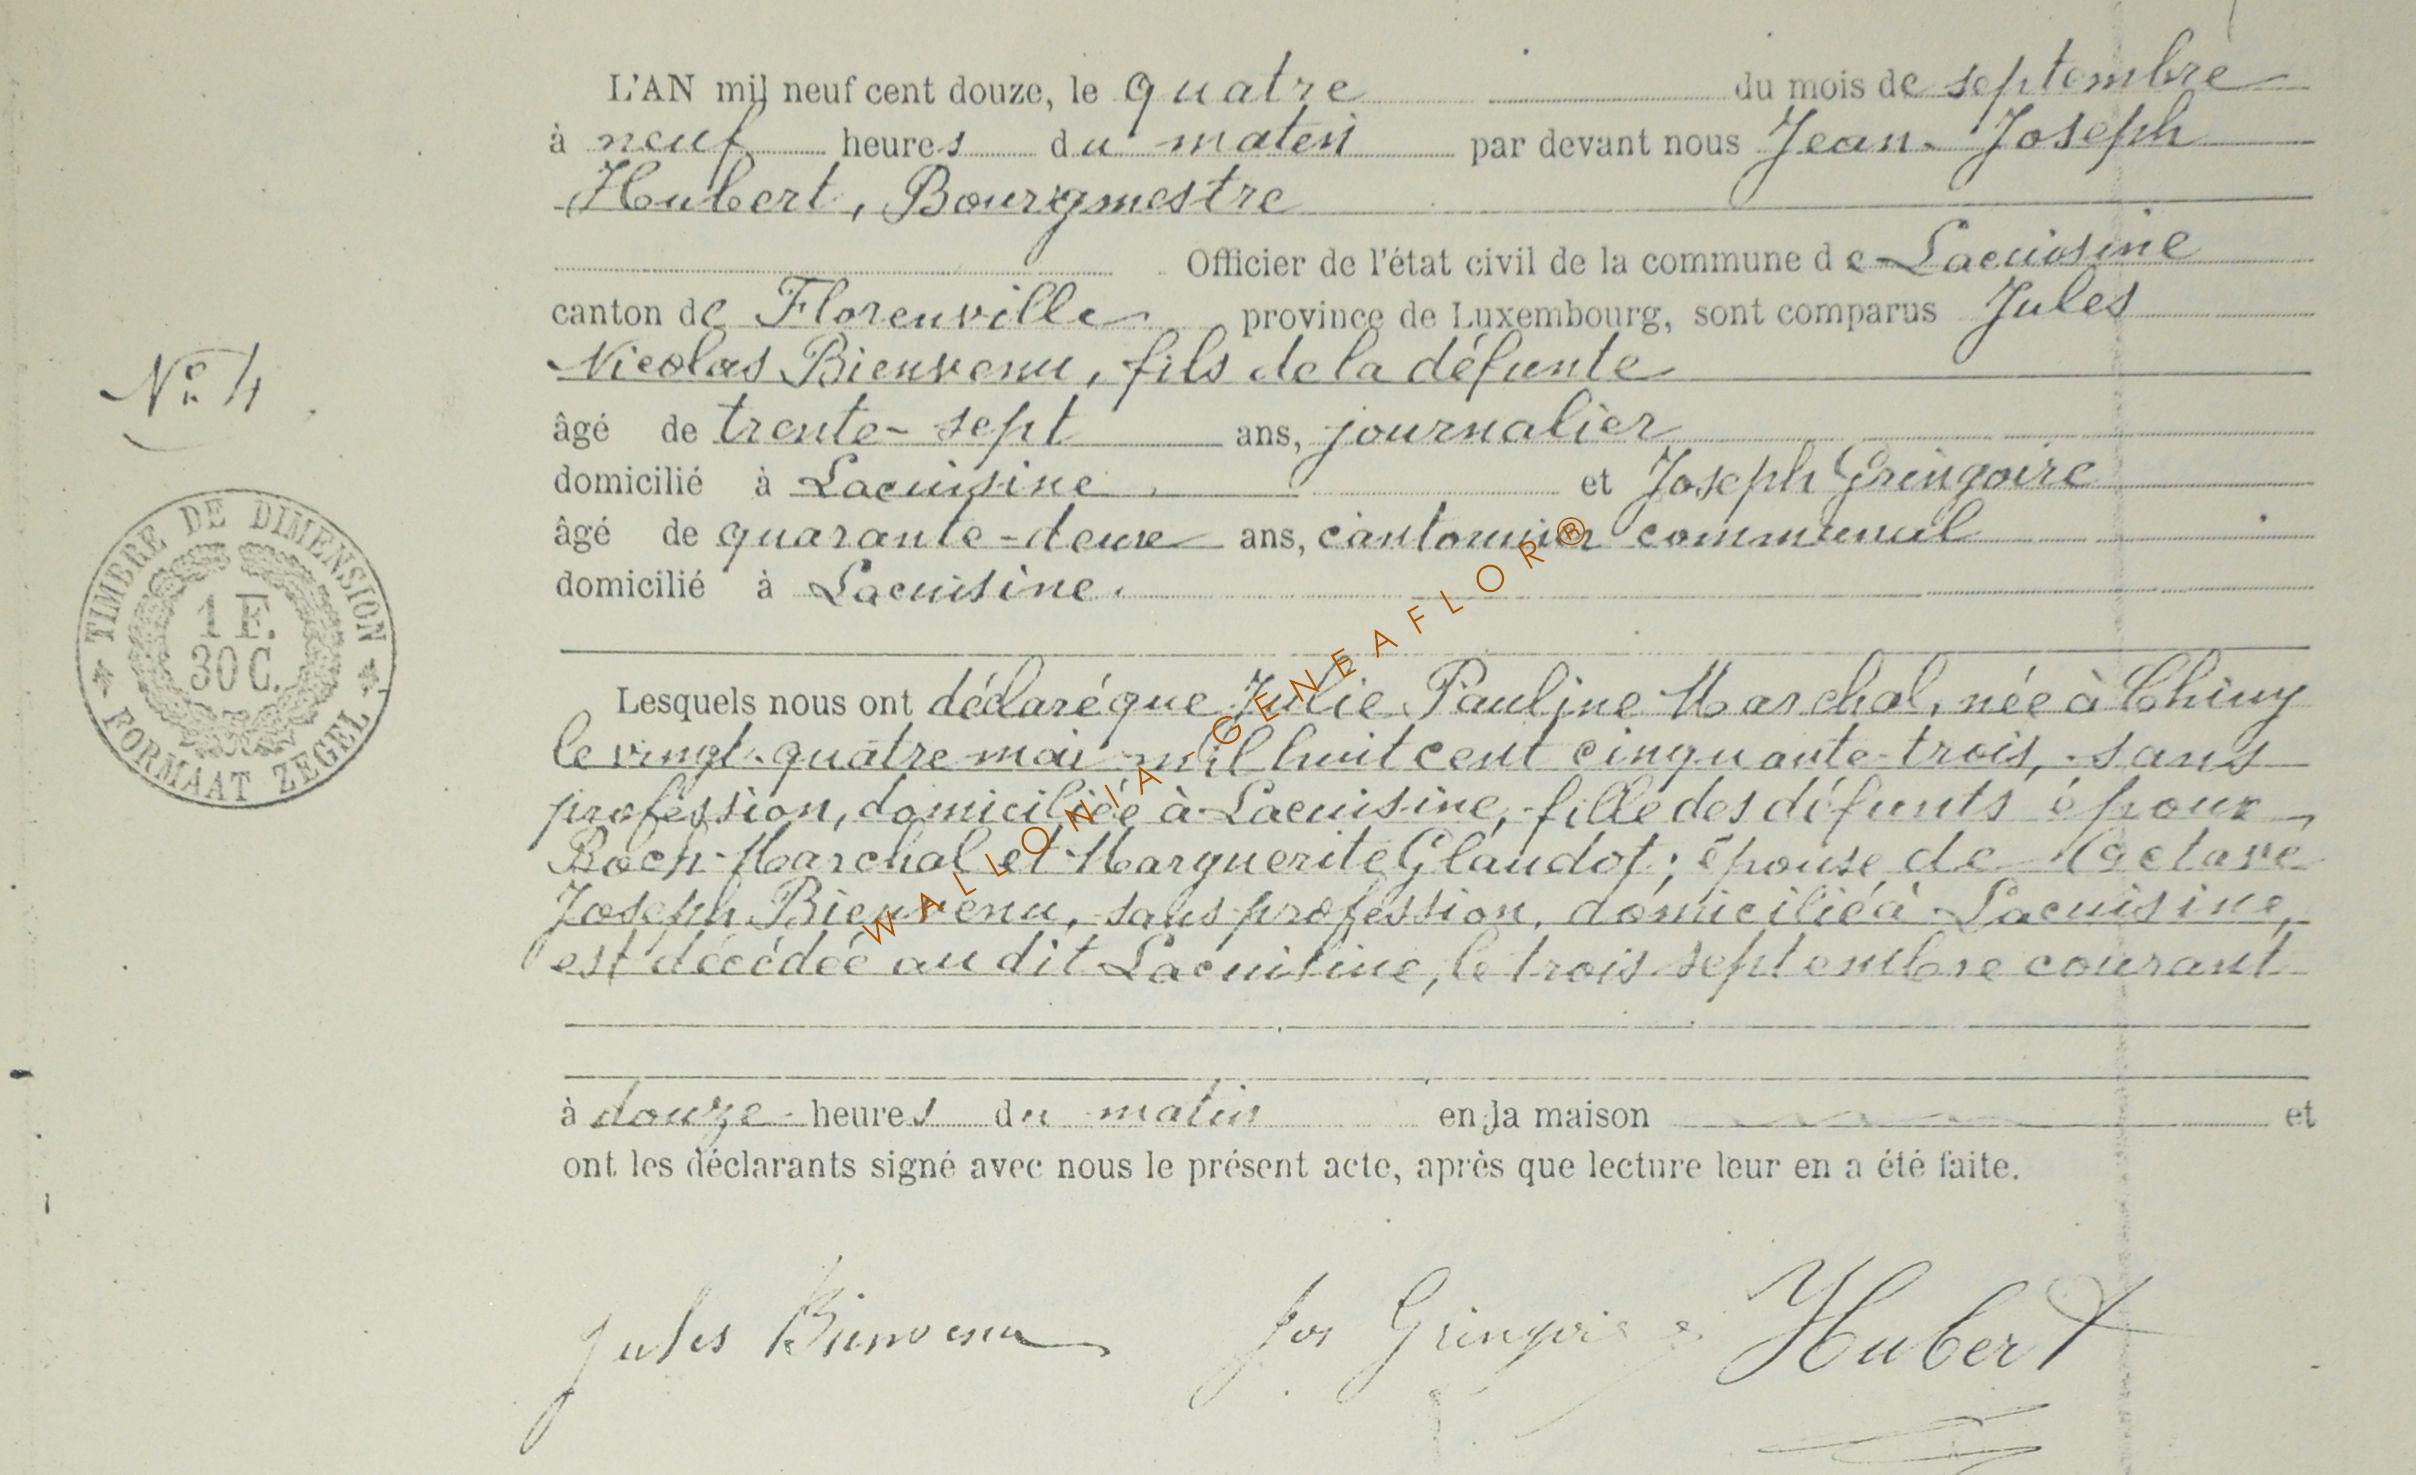 L'AN mil neuf cent douze, le quatre du mois de septembre
à neuf heures du matin par devant nous Jean-Joseph
Hubert, Bourgmestre
Officier de l'état civil de la commune de Lacuisine
canton de Florenville province de Luxembourg, sont comparus Jules
Nicolas Bienvenu, fils de la défunte
N° 4
âgé de trente-sept ans, journalier
domicilié à Lacuisine et Joseph Gringoire
âgé de quarante-deux ans, cantonnier communal
domicilié à Lacuisine.
TIMBRE DE DIMENSION
1 F.
30 C.
FORMAAT ZEGEL
WALLONIA-GENEAFLOR®
Lesquels nous ont déclaré que Julie Pauline Marchal, née à Chiny
le vingt-quatre mai mil huit cent cinquante-trois, sans
profession, domiciliée à Lacuisine, fille des défunts époux
Roch Marchal et Marguerite Glaudot; épouse de Octave
Joseph Bienvenu, sans profession, domicilié à Lacuisine,
est décédée au dit Lacuisine, le trois septembre courant
à douze heures du matin en la maison et
ont les déclarants signé avec nous le présent acte, après que lecture leur en a été faite.
Jules Bienvenu Jos Gringoire Hubert